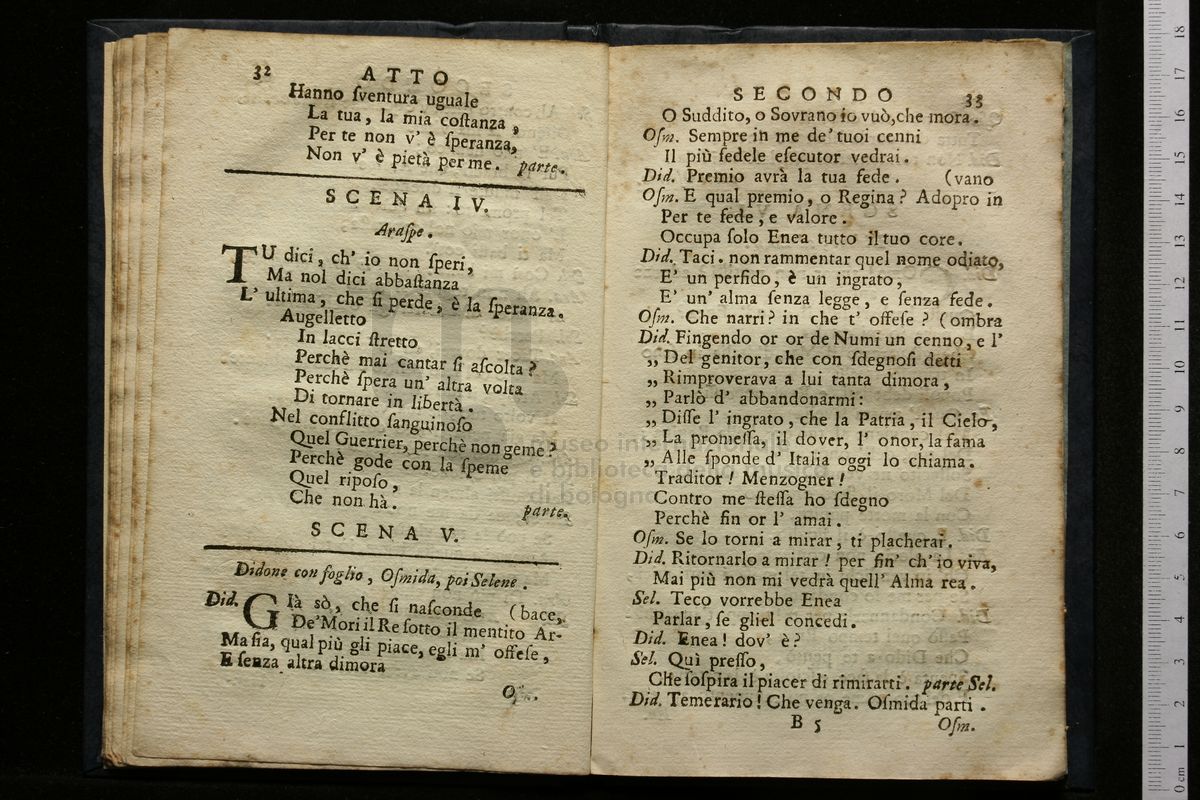 32 ATTO
Hanno ſventura uguale
La tua, la mia coſtanza,
Per te non v' è ſperanza,
Non v' è pietà per me. parte.
SCENA IV.
Araſpe.
TU dici, ch' io non ſperi,
Ma nol dici abbaſtanza
L' ultima, che ſi perde, è la ſperanza.
Augelletto
In lacci ſtretto
Perchè mai cantar ſi aſcolta?
Perchè ſpera un' altra volta
Di tornare in libertà.
Nel conflitto ſanguinoſo
Quel Guerrier, perchè non geme?
Perchè gode con la ſpeme
Quel ripoſo,
Che non hà. parte.
SCENA V.
Didone con foglio, Oſmida, poi Selene.
Did. Già sò, che ſi naſconde (bace,
De' Mori il Re ſotto il mentito Ar-
Ma ſia, qual più gli piace, egli m' offeſe,
E ſenza altra dimora
SECONDO 33
O Suddito, o Sovrano io vuò, che mora.
Oſm. Sempre in me de' tuoi cenni
Il più fedele eſecutor vedrai.
Did. Premio avrà la tua fede. (vano
Oſm. E qual premio, o Regina? Adopro in
Per te fede, e valore.
Occupa ſolo Enea tutto il tuo core.
Did. Taci. non rammentar quel nome odiato,
E' un perfido, è un ingrato,
E' un' alma ſenza legge, e ſenza fede.
Oſm. Che narri? in che t' offeſe? (ombra
Did. Fingendo or or de Numi un cenno, e l'
„ Del genitor, che con ſdegnoſi detti
„ Rimproverava a lui tanta dimora,
„ Parlò d' abbandonarmi:
„ Diſſe l' ingrato, che la Patria, il Cielo,
„ La promeſſa, il dover, l' onor, la fama
„ Alle ſponde d' Italia oggi lo chiama.
Traditor! Menzogner!
Contro me ſteſſa ho ſdegno
Perchè fin or l' amai.
Oſm. Se lo torni a mirar, ti placherai.
Did. Ritornarlo a mirar! per fin' ch' io viva,
Mai più non mi vedrà quell' Alma rea.
Sel. Teco vorrebbe Enea
Parlar, ſe gliel concedi.
Did. Enea! dov' è?
Sel. Quì preſſo,
Che ſoſpira il piacer di rimirarti. parte Sel.
Did. Temerario! Che venga. Oſmida parti.
B 5 Oſm.